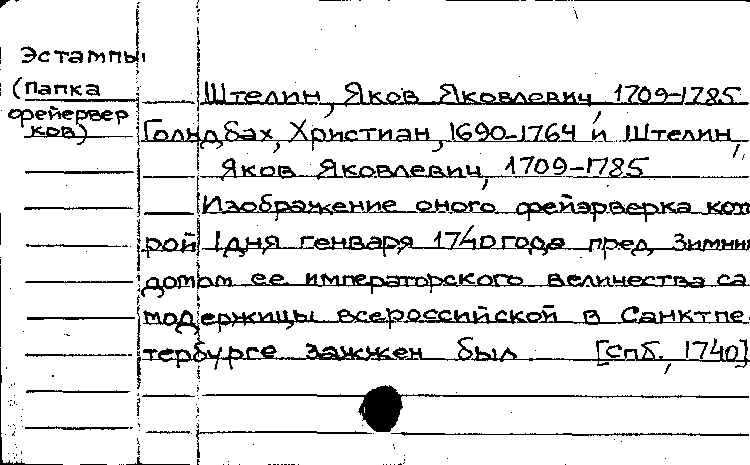 Эстампы
(Папка
фейервер
ков)
Штелин, Яков Яковлевич, 1709-1785
Гольдбах, Христиан, 1690-1764 и Штелин,
Яков Яковлевич, 1709-1785
Изображение оного фейэрверка кот
рой 1дня генваря 1740 года пред Зимним
домом ее императорского величества са
модержицы всероссийской в Санктпе
тербурге зажжен был. [Спб., 1740]